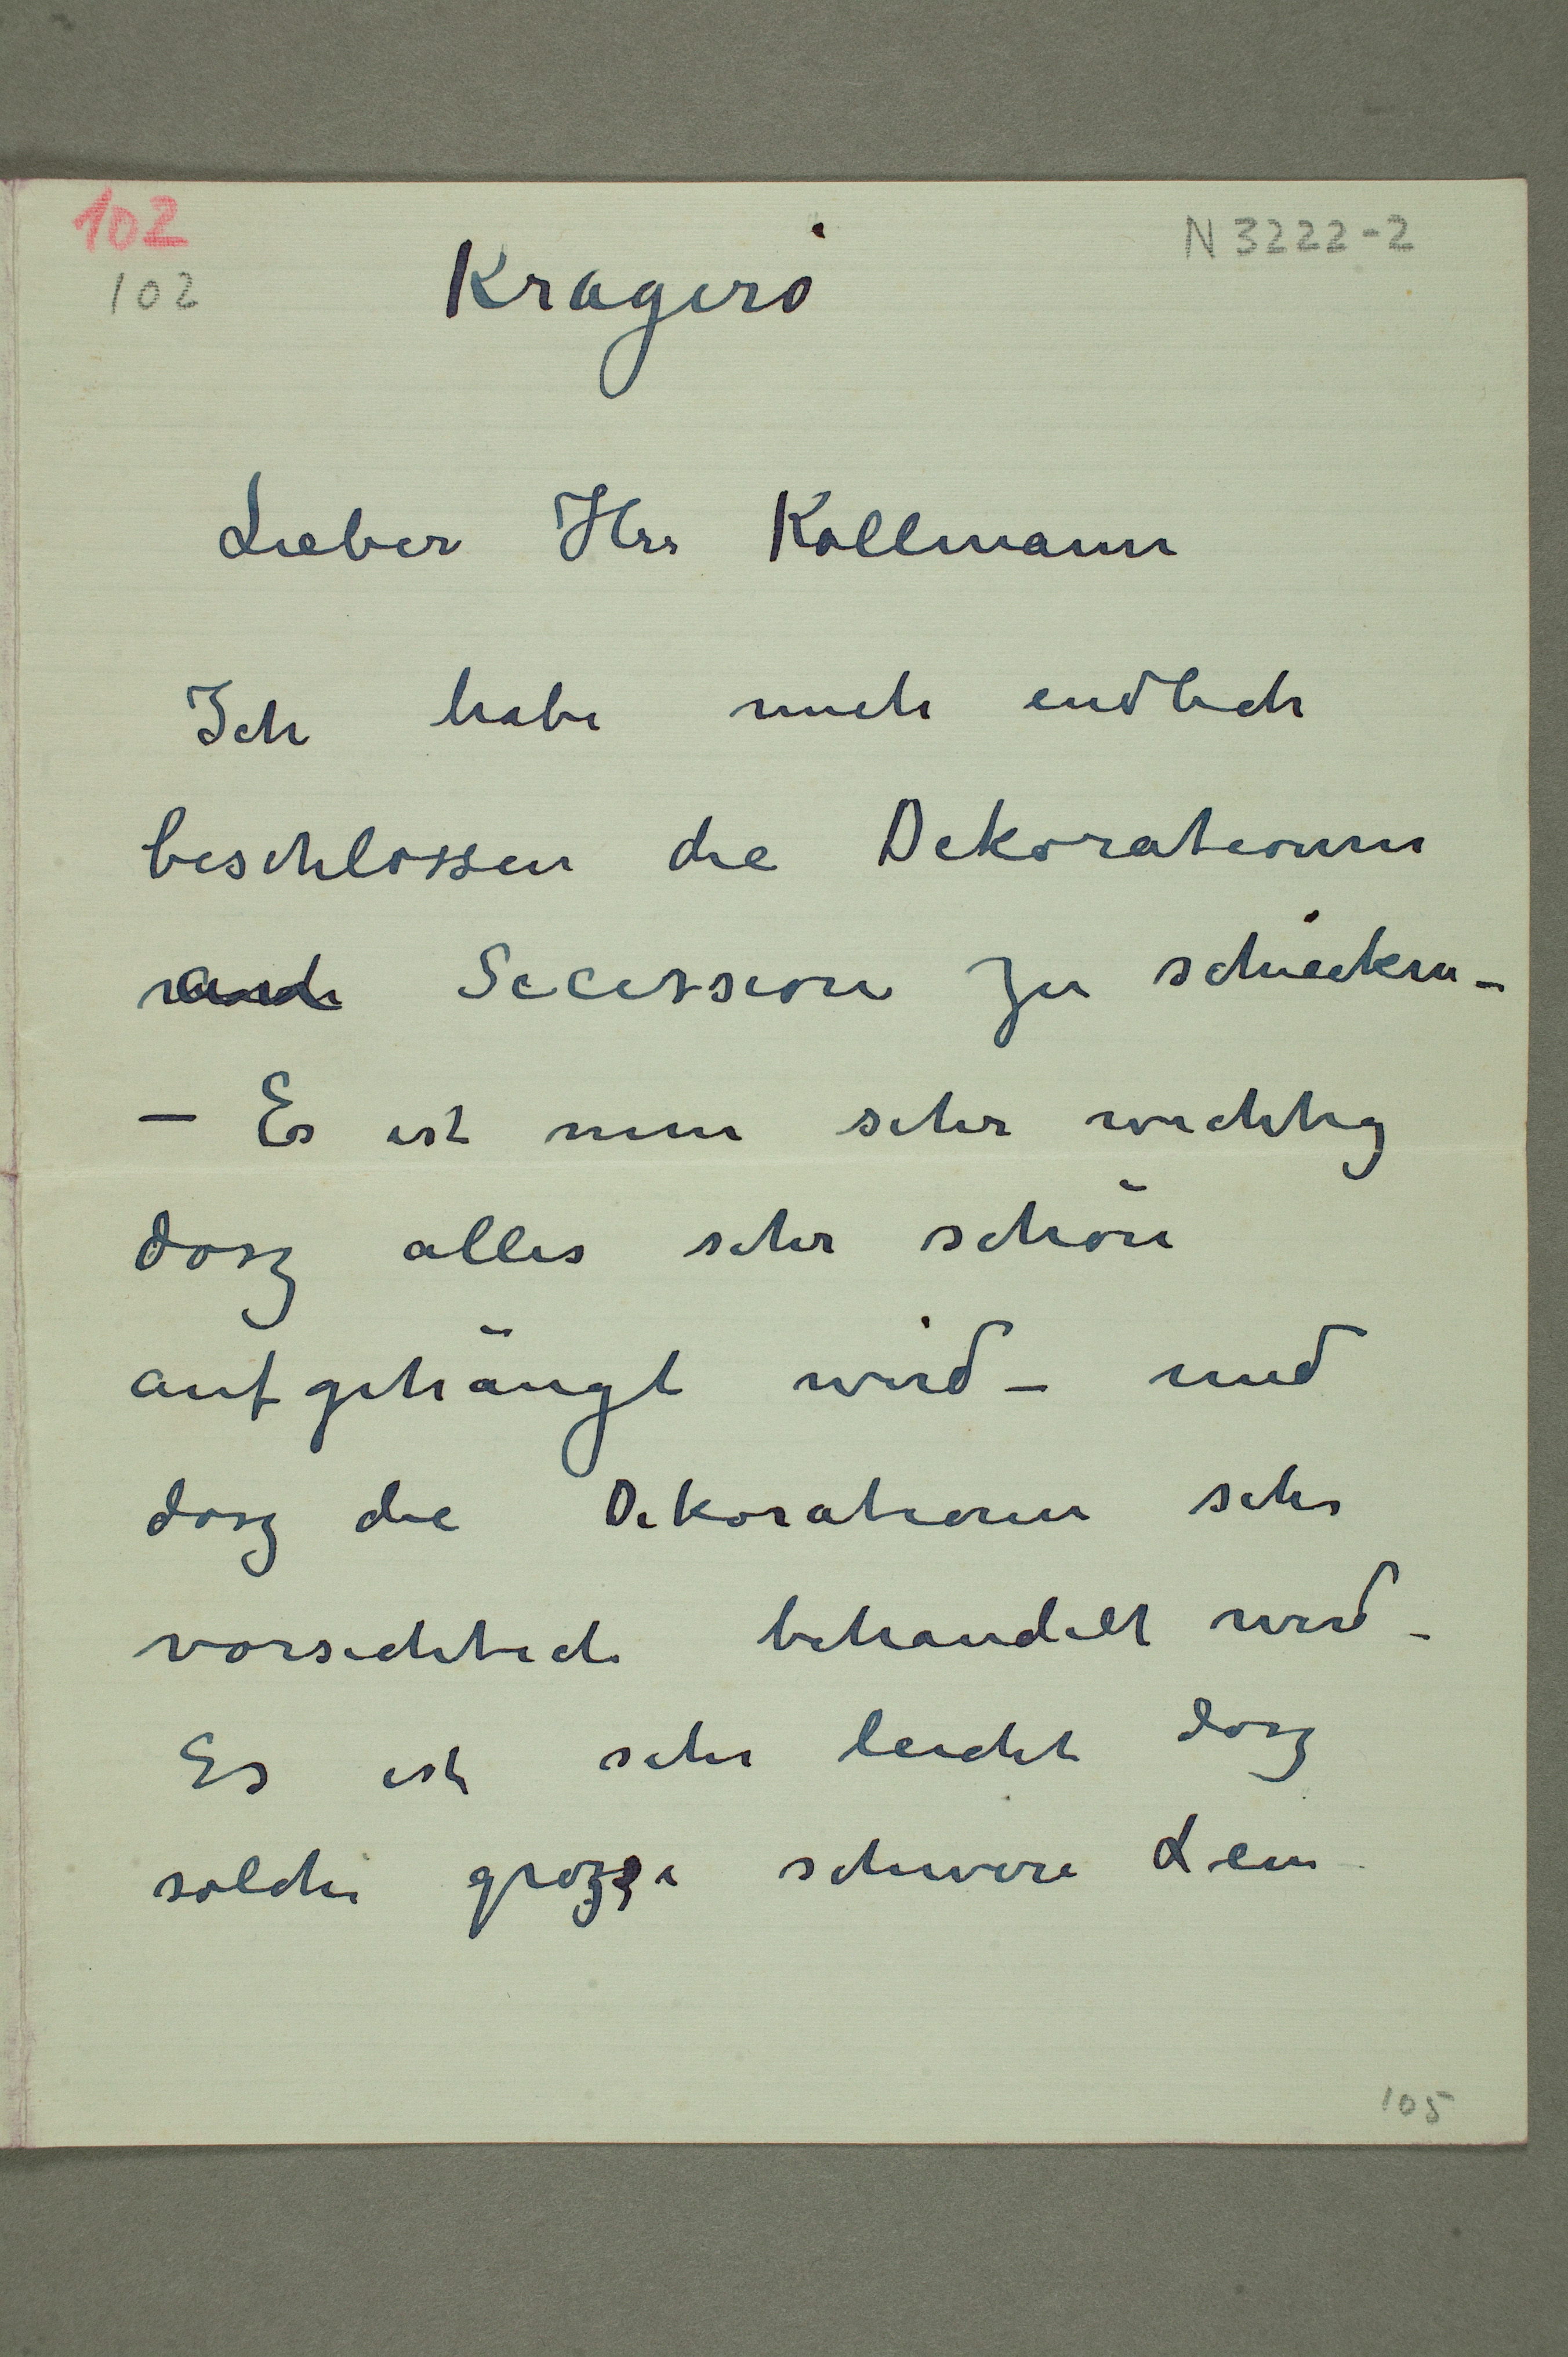 102
N 3222-2
102
Kragerö
Lieber Herr Kollmann
Ich habe mich endlich
beschlossen die Dekorationen
nach Secession zu schicken –
– Es ist nun sehr wichtig
dasz alles sehr schön
aufgehängt wird – und
dasz die Dekorationen sehr
vorsichtich behandelt wird –
Es ist sehr leicht dasz
solche grozse schwere Lein
105